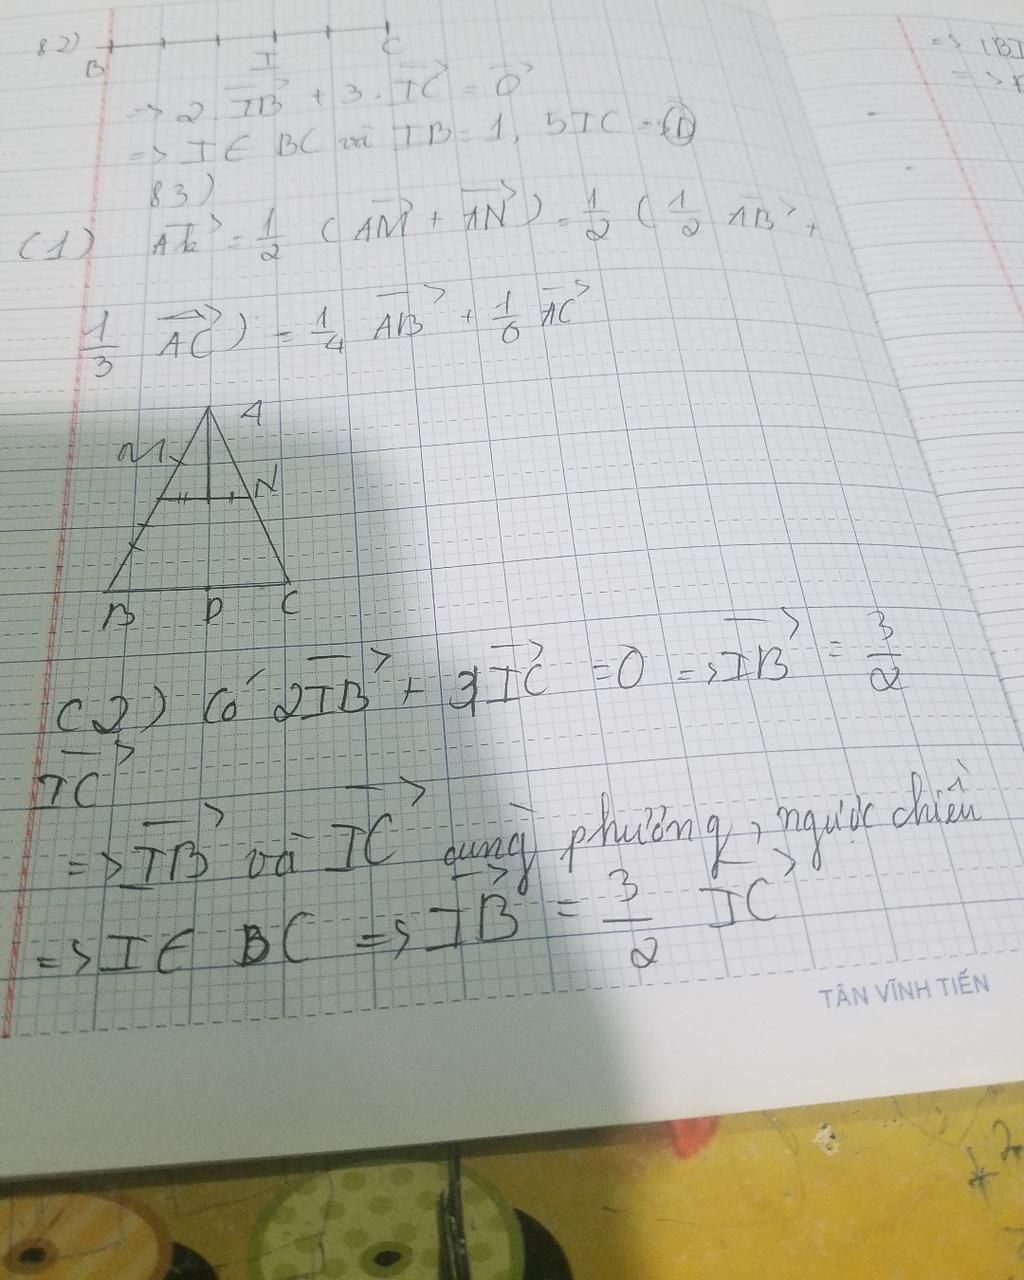 82)
B I C
=> 2.IB + 3.IC = 0
=> I ∈ BC và IB = 1, 5IC - (D)
83)
(1) AK = 1/2 (AM + AN) = 1/2 (1/2 AB +
1/3 AC) = 1/4 AB + 1/6 AC
A
M
N
B D C
(2) Có 2IB + 3IC = 0 => IB = 3/2
IC
=> IB và IC cùng phương, ngược chiều
=> I ∈ BC => IB = 3/2 IC
TÂN VĨNH TIẾN